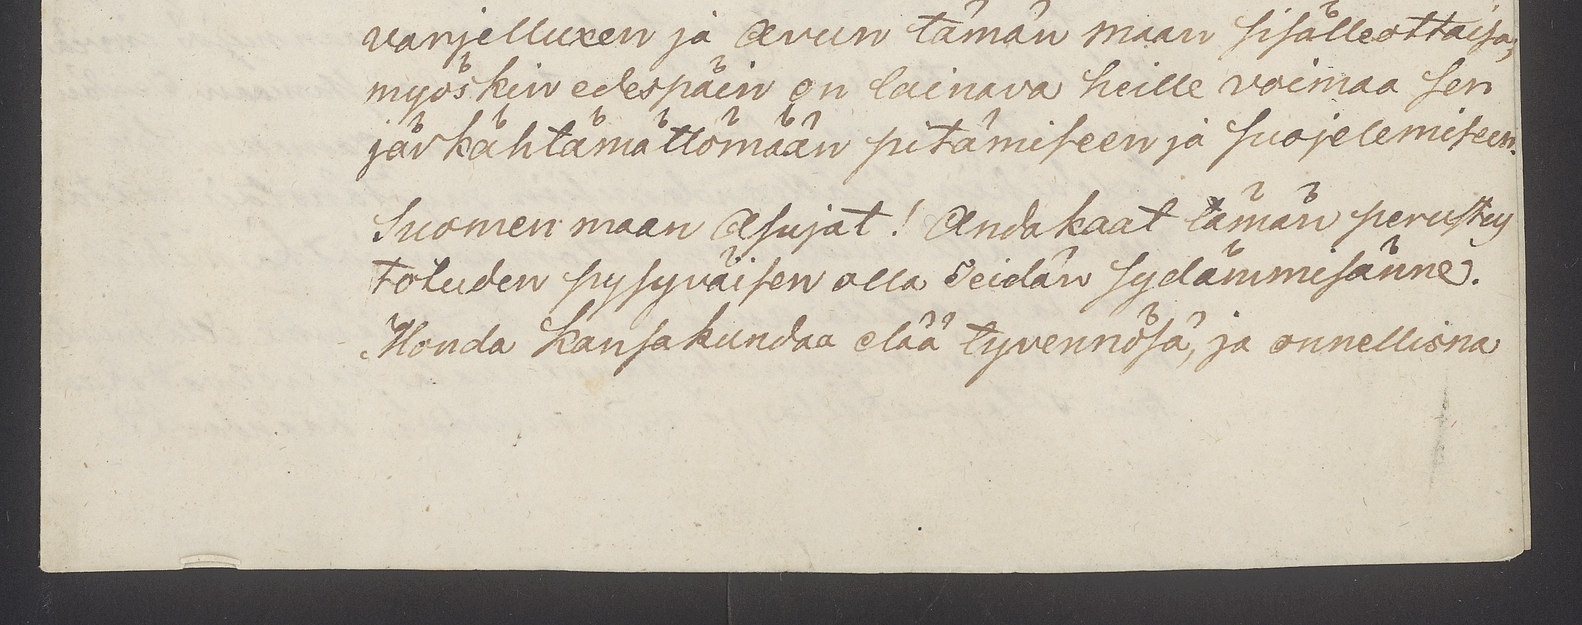 varjelluxen ja avun tämän maan sisälleottaisa;
myöskin edespäin on lainava heille voimaa sen
järkähtämättömään pitämiseen ja suojelemiseen.
Suomen maan asujat! Andakaat tämän perustus
totuden pysyväisen olla Teidän sydämmisänne.
Monda kansakundaa elää tyvennösä, ja onnellisna